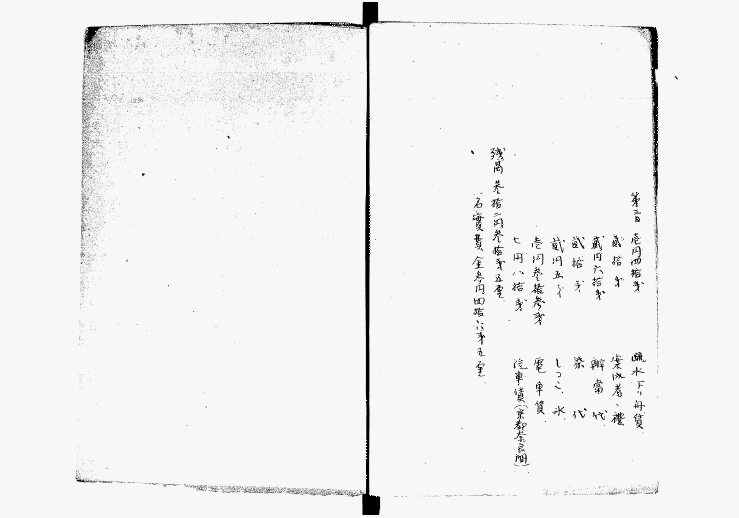 第三日 壱円四拾銭 疏水下り舟賃
弐拾銭 案内者ヘ礼
弐円六拾銭 辨當代
弐拾銭 茶代
弐円五銭 しつこ、氷
壱円参拾参銭 電車賃
七円八拾銭 汽車賃(京都奈良間)
残高 参拾二円参拾銭五厘
一名實費金参円四拾六銭五厘